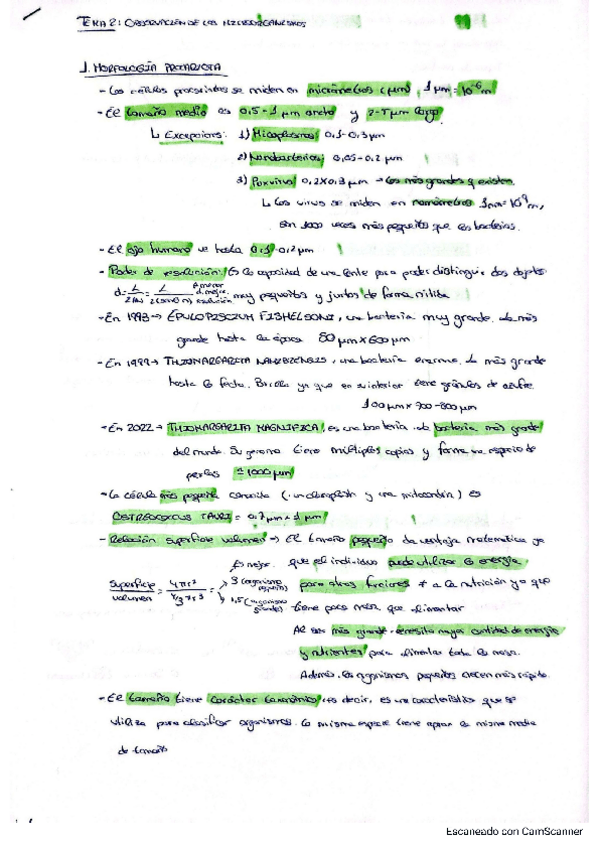 TEMA 2: OBSERVACIÓN DE LOS MICROORGANISMOS
1. MORFOLOGÍA PROCARIOTA
- Las células procariotas se miden en micrómetros (μm), 1 μm = 10⁻⁶ m
- El tamaño medio es 0,5-1 μm ancho y 2-5 μm largo
↳ Excepciones: 1) Micoplasmas: 0,1-0,3 μm
2) Nanobacterias: 0,05-0,2 μm
3) Poxvirus: 0,2x0,3 μm → Los más grandes q existen
↳ Los virus se miden en nanómetros 1nm = 10⁻⁹ m,
son 1000 veces más pequeños que las bacterias.
- El ojo humano ve hasta 0,1-0,2 μm
- Poder de resolución: Es la capacidad de una lente para poder distinguir dos objetos
muy pequeños y juntos de forma nítida
- En 1993 → EPULOPISCIUM FISHELSONI, una bacteria muy grande. La más
grande hasta la época 80 μm x 600 μm
- En 1999 → THIOMARGARITA NAMIBIENSIS, una bacteria enorme. La más grande
hasta la fecha. Brilla ya que en su interior tiene gránulos de azufre
100 μm x 700-800 μm
- En 2022 → THIOMARGARITA MAGNIFICA, es una bacteria. La bacteria más grande
del mundo. Su genoma tiene múltiples copias y forma una especie de
perlas ≃ 1000 μm
- La célula más pequeña conocida (1 cloroplasto y una mitocondria) es
OSTREOCOCUS TAURI = 0,7 μm x 1 μm
- Relación superficie volumen → El tamaño pequeño da ventaja matemática ya
Es mejor que el individuo puede utilizar la energía
Superficie/volumen = 4πr²/4/3πr³ = 3 (organismo pequeño) para otras funciones ≠ a la nutrición ya que
1,5 (organismo grande) tiene poca masa que alimentar
Al ser más grande necesita mayor cantidad de energía
y nutrientes para alimentar toda la masa.
Además, los organismos pequeños crecen más rápido.
- El tamaño tiene carácter taxonómico, es decir, es una característica que se
utiliza para clasificar organismos. La misma especie tiene aprox la misma media
de tamaño
Escaneado con CamScanner